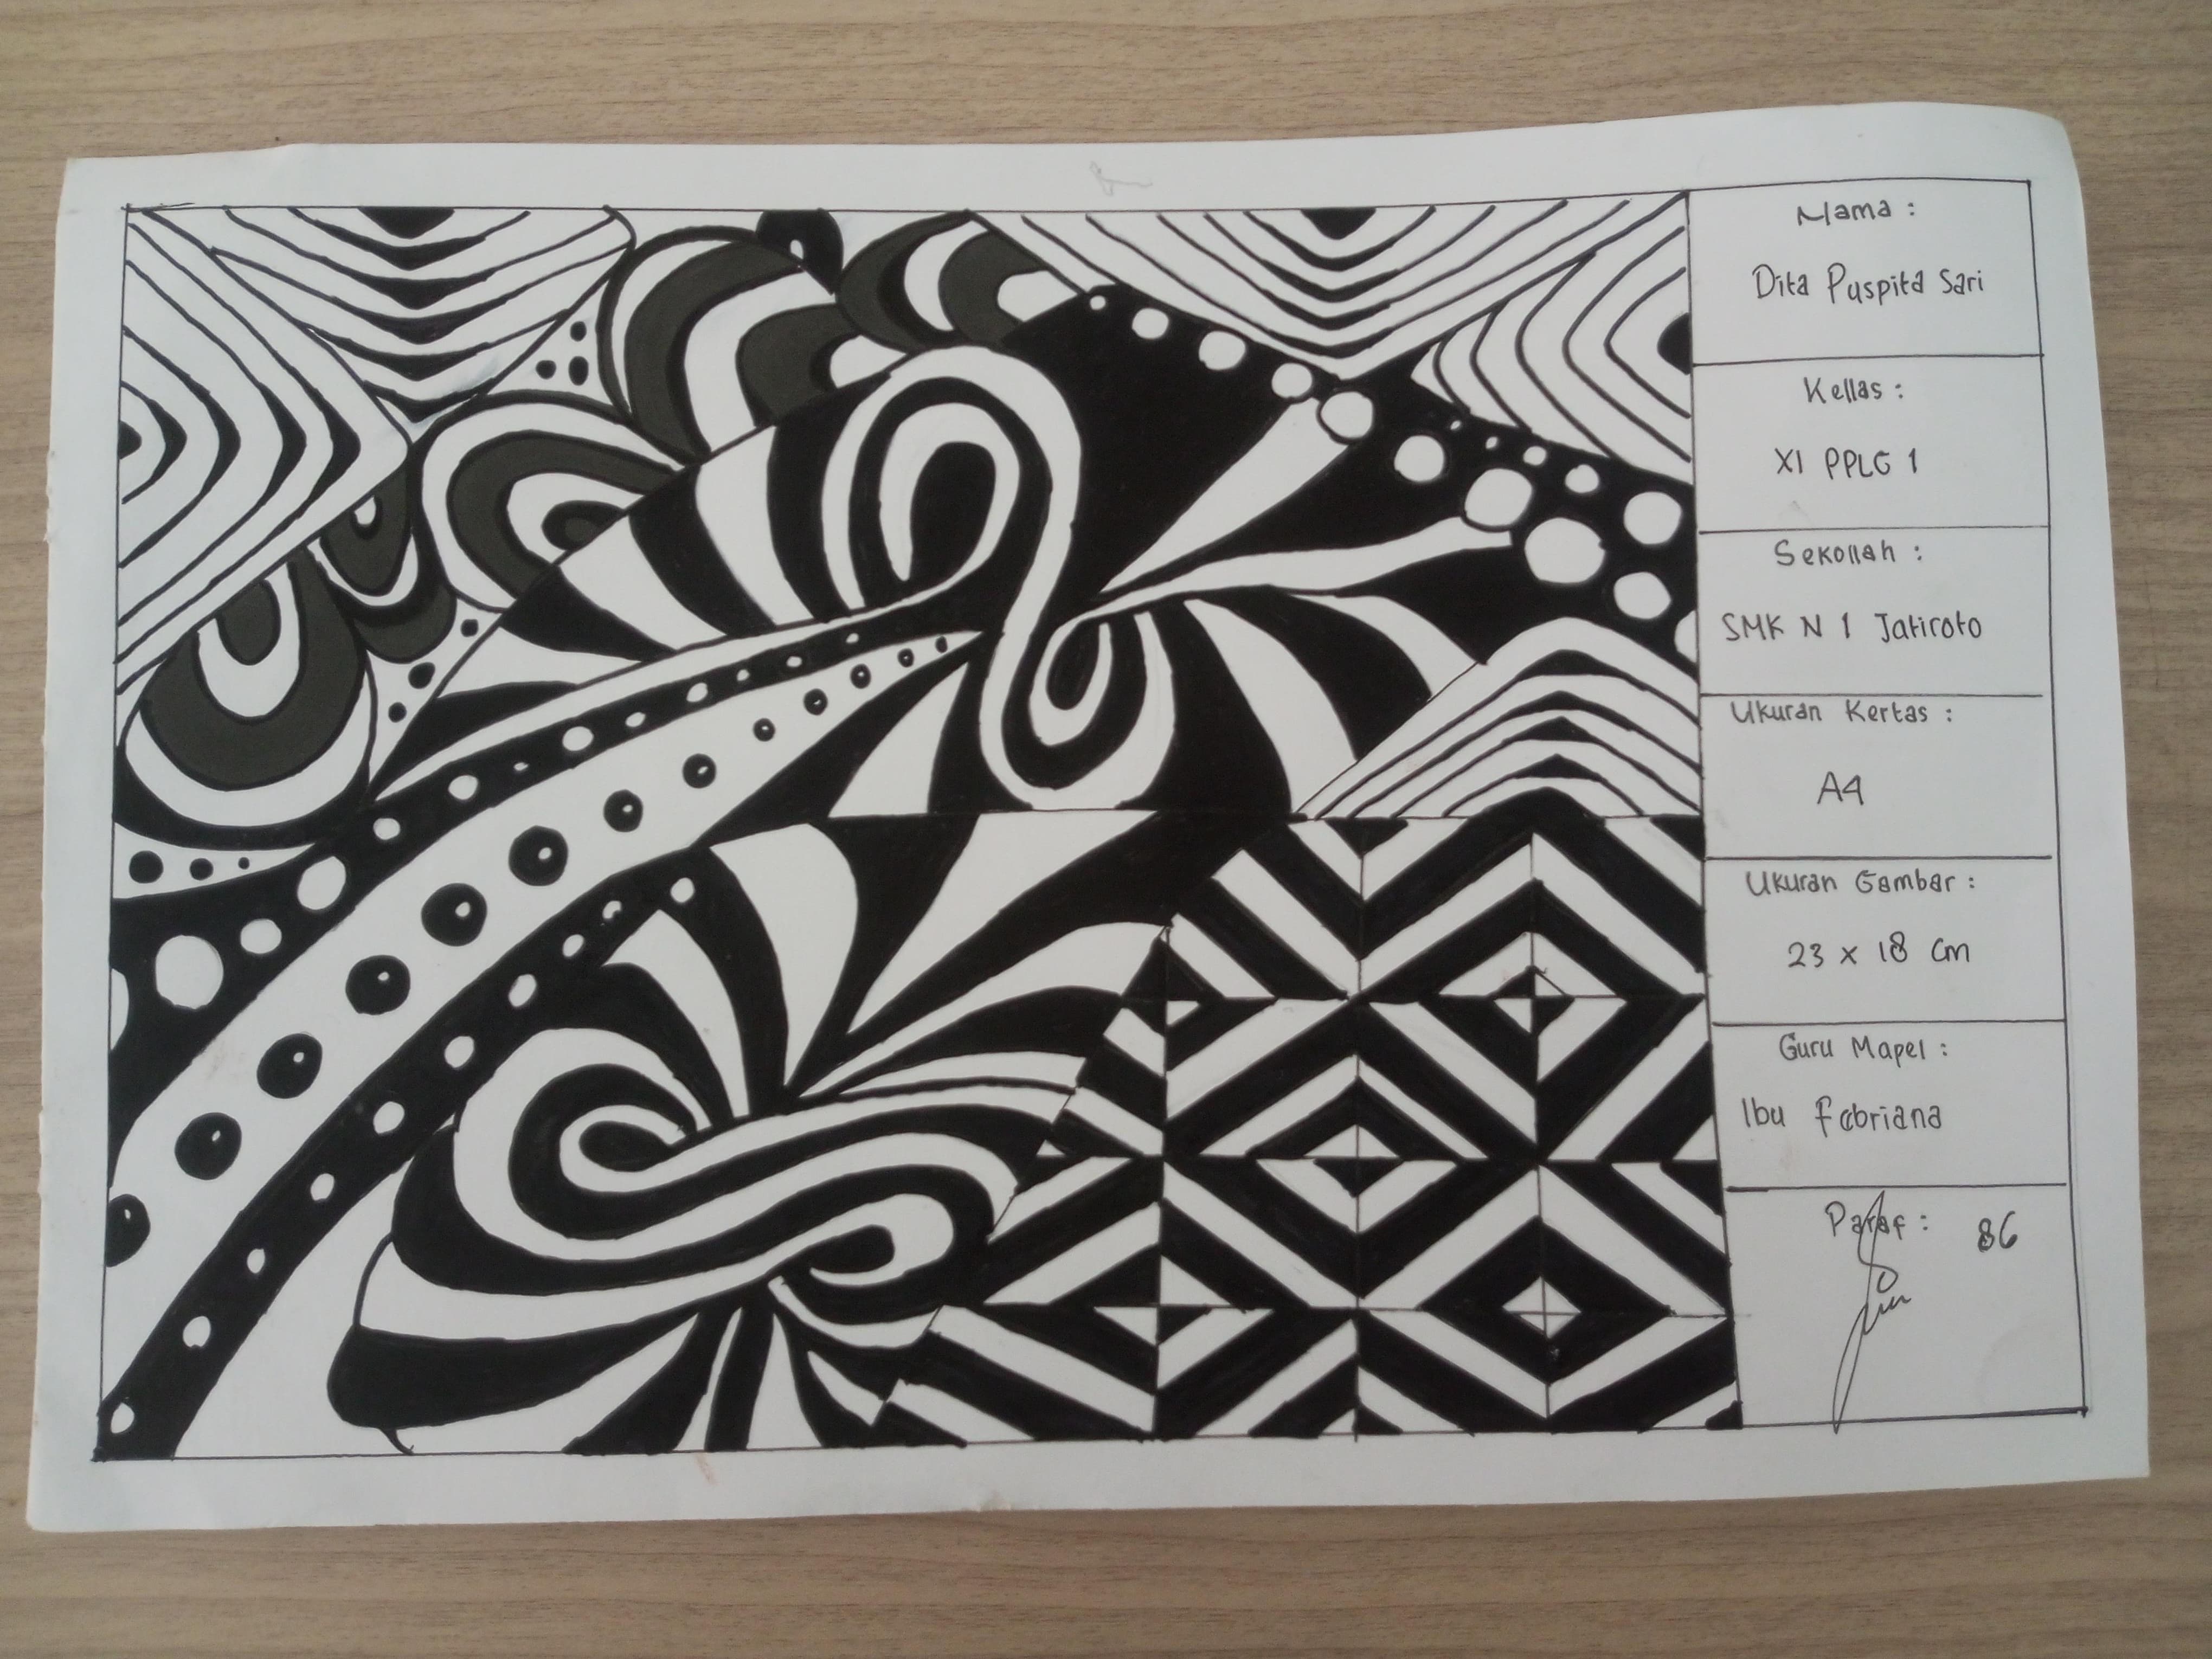 Nama :
Dita Puspita Sari
Kellas :
XI PPLG 1
Sekollah :
SMK N 1 Jatiroto
Ukuran Kertas :
A4
Ukuran Gambar :
23 x 18 cm
Guru Mapel :
Ibu Febriana
Paraf : 86